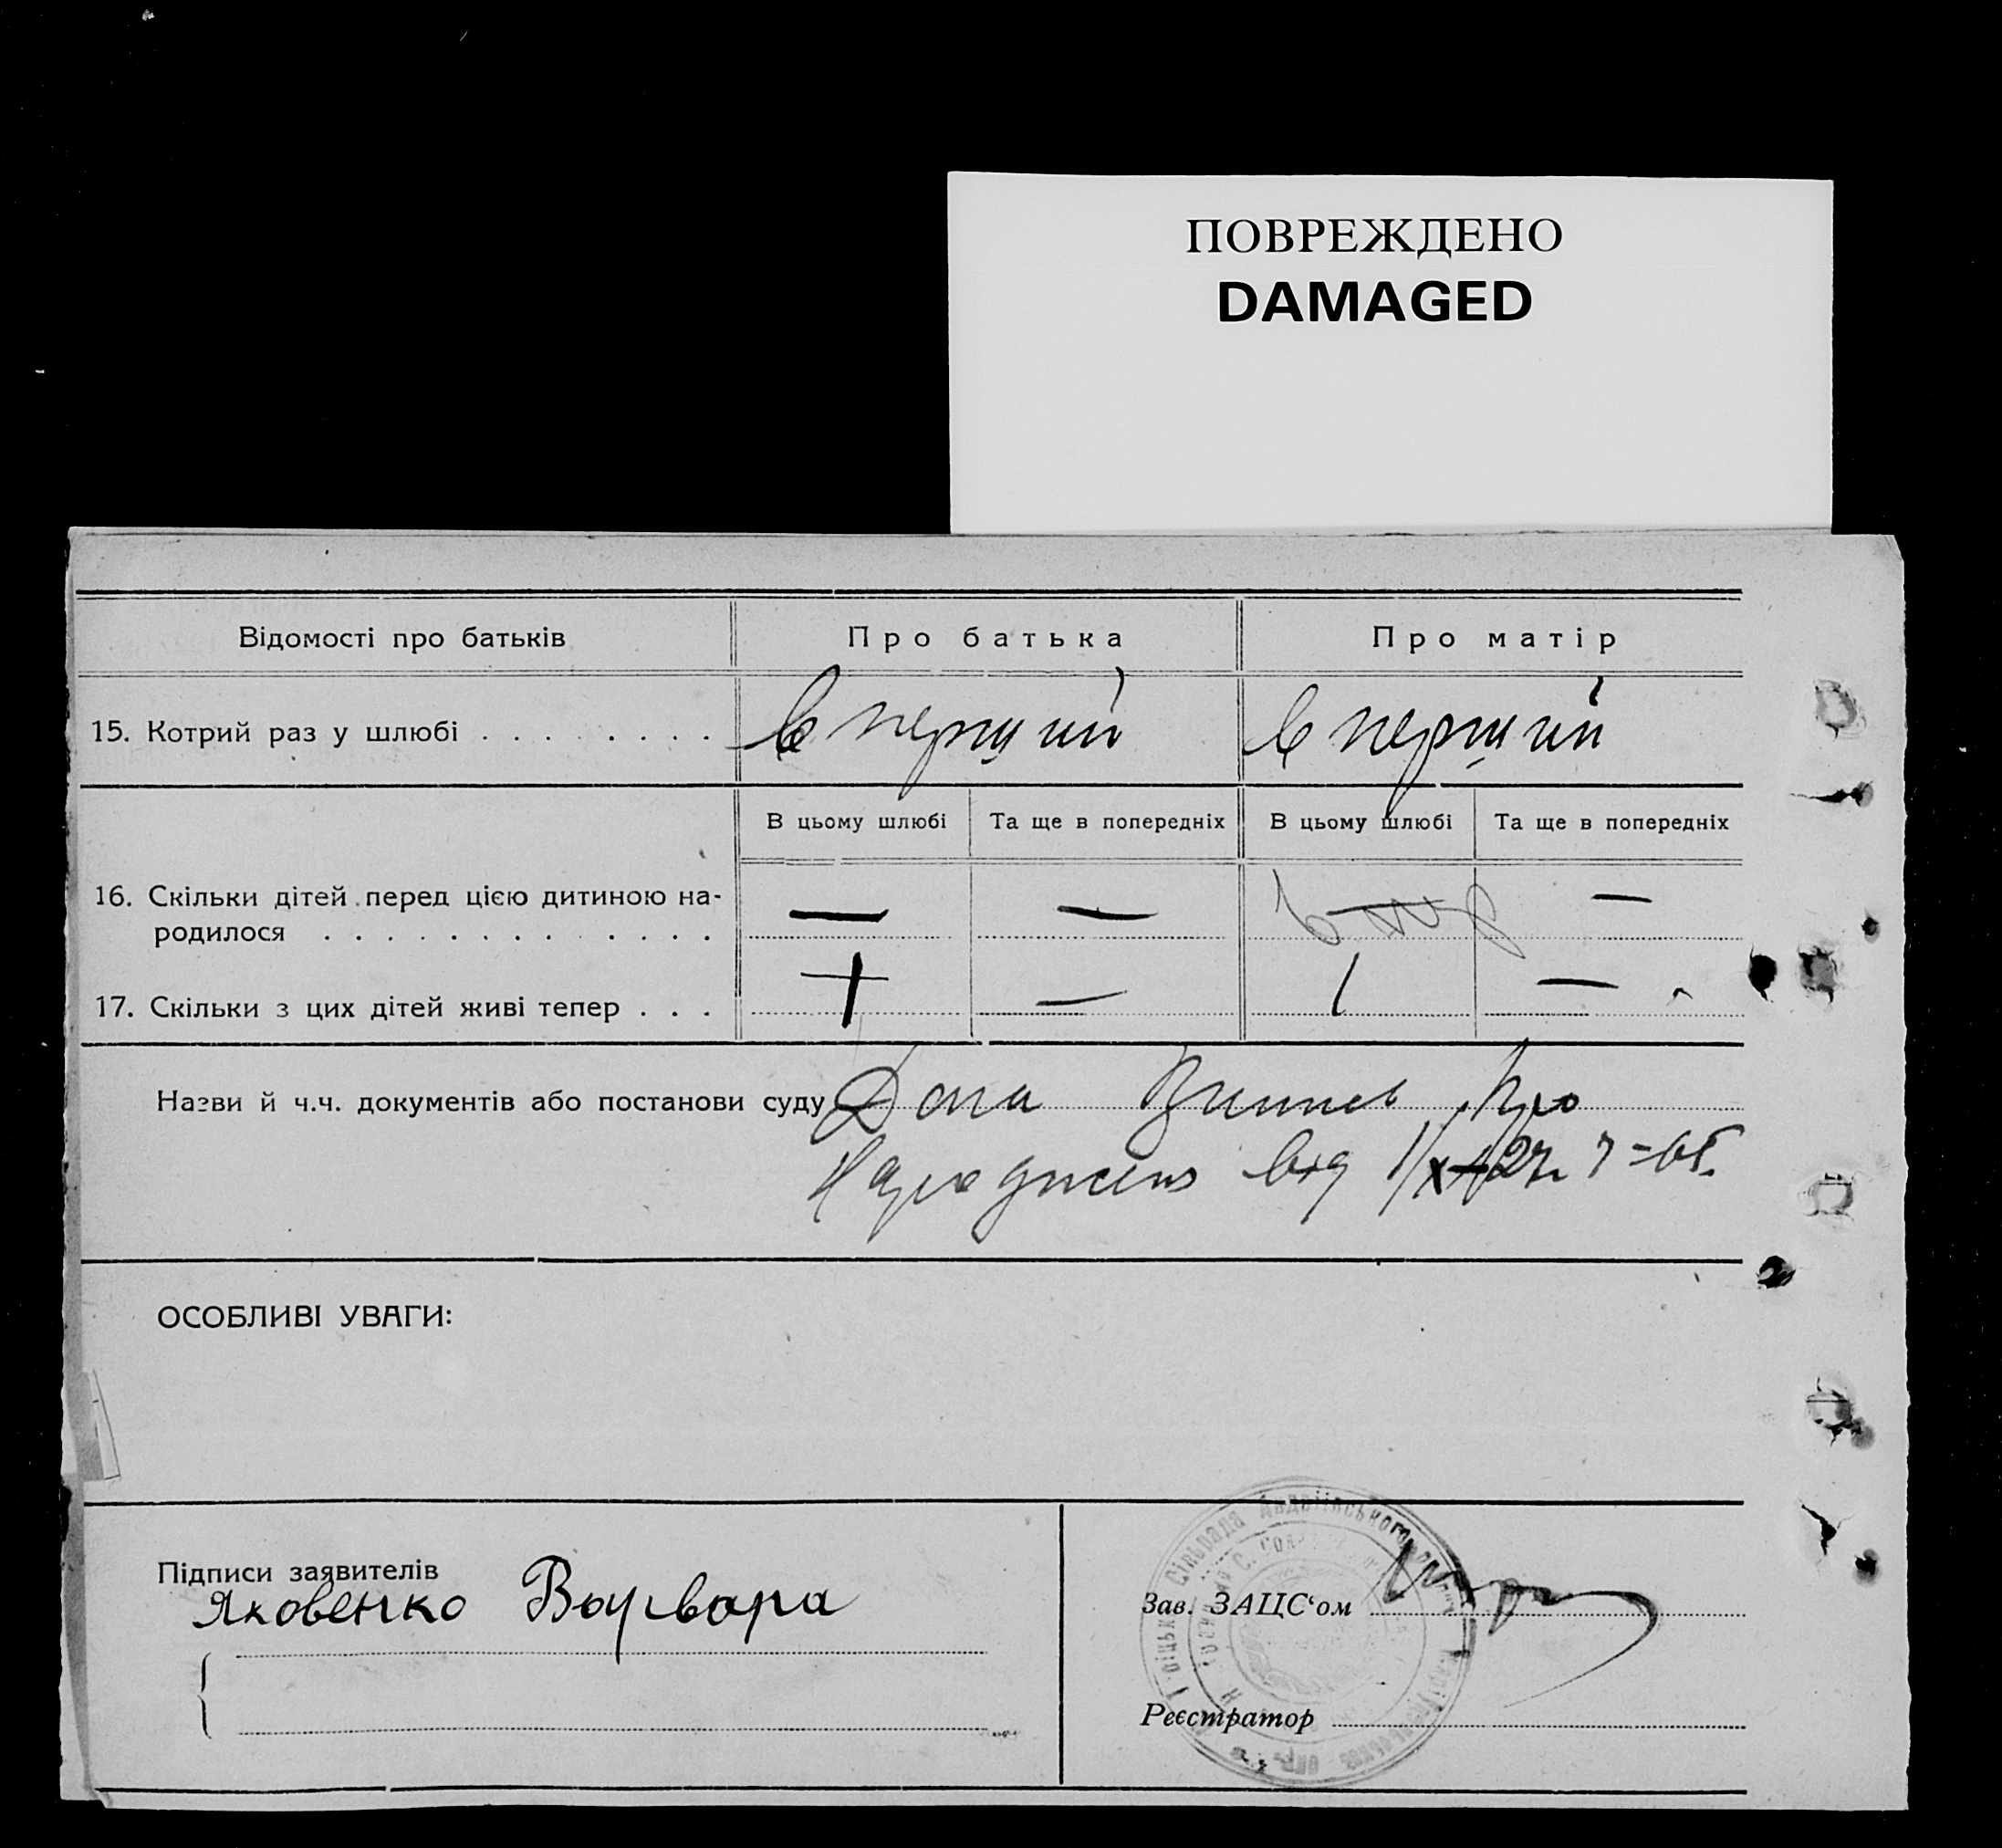 ПОВРЕЖДЕНО
DAMAGED
Відомості про батьків
Про батька
Про матір
15. Котрий раз у шлюбі . . . . . . . .
в перший
в перший
В цьому шлюбі
Та ще в попередніх
В цьому шлюбі
Та ще в попередніх
16. Скільки дітей перед цією дитиною на-
родилося . . . . . . . . . . . . .
— — — —
17. Скільки з цих дітей живі тепер . . .
— 1 —
Назви й ч.ч. документів або постанови суду
про
від
ОСОБЛИВІ УВАГИ:
Підписи заявителів
Яковенко Варвара
Зав. ЗАЦС‘ом
Реєстратор
Сільрада Авдіївського